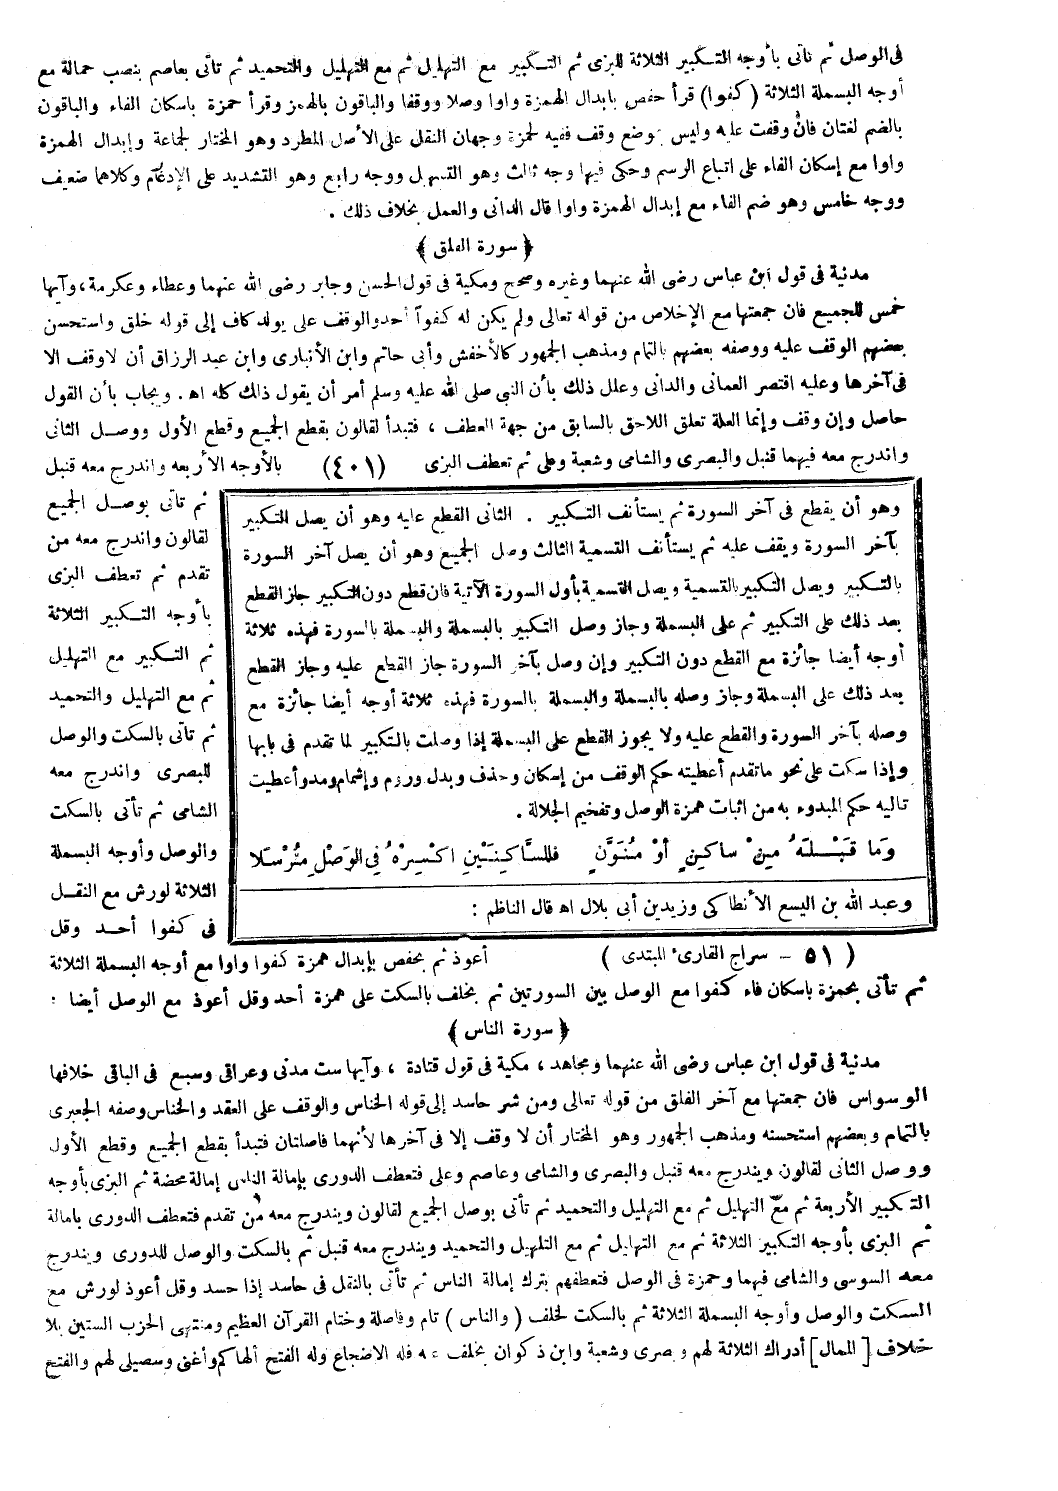 فى الوصل ثم تأتى بأوجه التكبير الثلاثة للبزى ثم التكبير مع التهليل ثم مع التهليل والتحميد ثم تأتى بعاصم بنصب حمالة مع
أوجه البسملة الثلاثة (كفوا) قرأ حفص بابدال الهمزة واوا وصلا ووقفا والباقون بالهمز وقرأ حمزة باسكان الفاء والباقون
بالضم لغتان فان وقفت عليه وليس بموضع وقف ففيه لحمزة وجهان النقل على الأصل المطرد وهو المختار لجماعة وإبدال الهمزة
واوا مع إسكان الفاء على اتباع الرسم وحكى فيها وجه ثالث وهو التسهيل ووجه رابع وهو التشديد على الإدغام وكلاهما ضعيف
ووجه خامس وهو ضم الفاء مع إبدال الهمزة واوا قال الدانى والعمل بخلاف ذلك .
﴿ سورة الفلق ﴾
مدنية فى قول ابن عباس رضى الله عنهما وغيره وصحح ومكية فى قول الحسن وجابر رضى الله عنهما وعطاء وعكرمة ، وآيها
خمس للجميع فان جمعتها مع الإخلاص من قوله تعالى ولم يكن له كفوا أحد والوقف على يولد كاف إلى قوله خلق واستحسن
بعضهم الوقف عليه ووصفه بعضهم بالتمام ومذهب الجمهور كالأخفش وأبى حاتم وابن الأنبارى وابن عبد الرزاق أن لاوقف الا
فى آخرها وعليه اقتصر العمانى والدانى وعلل ذلك بأن النبي صلى الله عليه وسلم أمر أن يقول ذاك كله اه . ويجاب بأن القول
حاصل وإن وقف وإنما العلة تعلق اللاحق بالسابق من جهة العطف ، فتبدأ لقالون بقطع الجميع وقطع الأول ووصل الثانى
واندرج معه فيهما قنبل والبصرى والشامى وشعبة وعلى ثم تعطف البزى (٤٠١) بالأوجه الأربعه واندرج معه قنبل
ثم تأتى بوصل الجميع
لقالون واندرج معه من
تقدم ثم تعطف البزى
بأوجه التكبير الثلاثة
ثم التكبير مع التهليل
ثم مع التهليل والتحميد
ثم تأتى بالسكت والوصل
للبصرى واندرج معه
الشامى ثم تأتى بالسكت
والوصل وأوجه البسملة
الثلاثة لورش مع النقل
فى كفوا أحد وقل
وهو أن يقطع فى آخر السورة ثم يستأنف التكبير . الثانى القطع عليه وهو أن يصل التكبير
بآخر السورة ويقف عليه ثم يستأنف القسمية الثالث وصل الجميع وهو أن يصل آخر السورة
بالتكبير ويصل التكبير بالقسمية ويصل القسمية بأول السورة الآتية فان قطع دون التكبير جاز القطع
بعد ذلك على التكبير ثم على البسملة وجاز وصل التكبير بالبسملة والبسملة بالسورة فهذه ثلاثة
أوجه أيضا جائزة مع القطع دون التكبير وإن وصل بآخر السورة جاز القطع عليه وجاز القطع
بعد ذلك على البسملة وجاز وصله بالبسملة والبسملة بالسورة فهذه ثلاثة أوجه أيضا جائزة مع
وصله بآخر السورة والقطع عليه ولا يجوز القطع على البسملة إذا وصلت بالتكبير لما تقدم فى بابها
وإذا سكت على نحو ماتقدم أعطيته حكم الوقف من إسكان وحذف وبدل وروم وإشمام ومد وأعطيت
تاليه حكم المبدوء به من اثبات همزة الوصل وتفخيم الجلالة .
وَمَا قَبْلَهُ مِنْ سَاكِنٍ أَوْ مُنَوَّنٍ فَلِلسَّاكِنَيْنِ اكْسِرْهُ فِى الوَصْلِ مُرْسَلَا
وعبد الله بن اليسع الأنطاكى وزيد بن أبى بلال اه قال الناظم :
( ٥١ - سراج القارىء المبتدى ) أعوذ ثم بحفص بإبدال همزة كفوا واوا مع أوجه البسملة الثلاثة
ثم تأتى بحمزة باسكان فاء كفوا مع الوصل بين السورتين ثم بخلف بالسكت على همزة أحد وقل أعوذ مع الوصل أيضا :
﴿ سورة الناس ﴾
مدنية فى قول ابن عباس رضى الله عنهما ومجاهد ، مكية فى قول قتادة ، وآيها ست مدنى وعراقى وسبع فى الباقى خلافها
الوسواس فان جمعتها مع آخر الفلق من قوله تعالى ومن شر حاسد إلى قوله الخناس والوقف على العقد والخناس وصفه الجعبرى
بالتمام وبعضهم استحسنه ومذهب الجمهور وهو المختار أن لا وقف إلا فى آخرها لأنهما فاصلتان فتبدأ بقطع الجميع وقطع الأول
ووصل الثانى لقالون ويندرج معه قنبل والبصرى والشامى وعاصم وعلى فتعطف الدورى بإمالة الناس إمالة محضة ثم البزى بأوجه
التكبير الأربعة ثم مع التهليل ثم مع التهليل والتحميد ثم تأتى بوصل الجميع لقالون ويندرج معه من تقدم فتعطف الدورى بامالة
ثم البزى بأوجه التكبير الثلاثة ثم مع التهليل ثم مع التلهيل والتحميد ويندرج معه قنبل ثم بالسكت والوصل للدورى ويندرج
معه السوسى والشامى فيهما وحمزة فى الوصل فتعطفهم بترك إمالة الناس ثم تأتى بالنقل فى حاسد إذا حسد وقل أعوذ لورش مع
السكت والوصل وأوجه البسملة الثلاثة ثم بالسكت لخلف ( والناس ) تام وفاصلة وختام القرآن العظيم ومنتهى الحزب الستين بلا
خلاف [ الممال ] أدراك الثلاثة لهم وبصرى وشعبة وابن ذكوان بخلف عنه فله الاضجاع وله الفتح ألهاكم وأغنى وسيصلى لهم والفتح